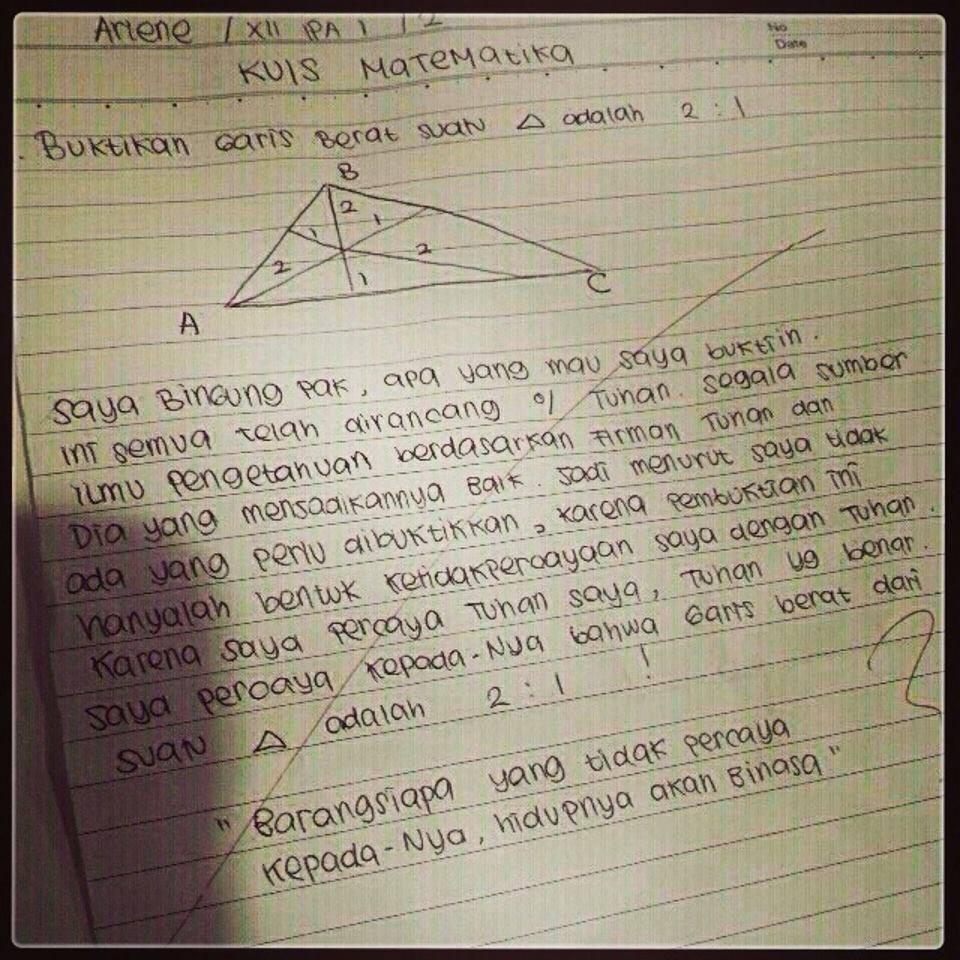 Arlene / XII IPA 1 / 2
No
Date
KUIS MATEMATIKA
. BUKTIKAN GARIS BERAT SUATU △ adalah 2 : 1
B
2
1
1
2
2
1
C
A
Saya BINGUNG PAK, apa yang mau saya buktiin.
INI semua telah dirancang o/ Tuhan. Segala sumber
ilmu pengetahuan berdasarkan Firman Tuhan dan
Dia yang mensadikannya Baik. Jadi menurut saya tidak
ada yang perlu dibuktikkan, karena pembuktian ini
hanyalah bentuk ketidakpercayaan saya dengan Tuhan.
Karena saya percaya Tuhan saya, Tuhan yg benar.
saya percaya kepada-Nya bahwa Garis berat dari
SUATU △ adalah 2 : 1 !
"Barangsiapa yang tidak percaya
kepada-Nya, hidupnya akan Binasa"